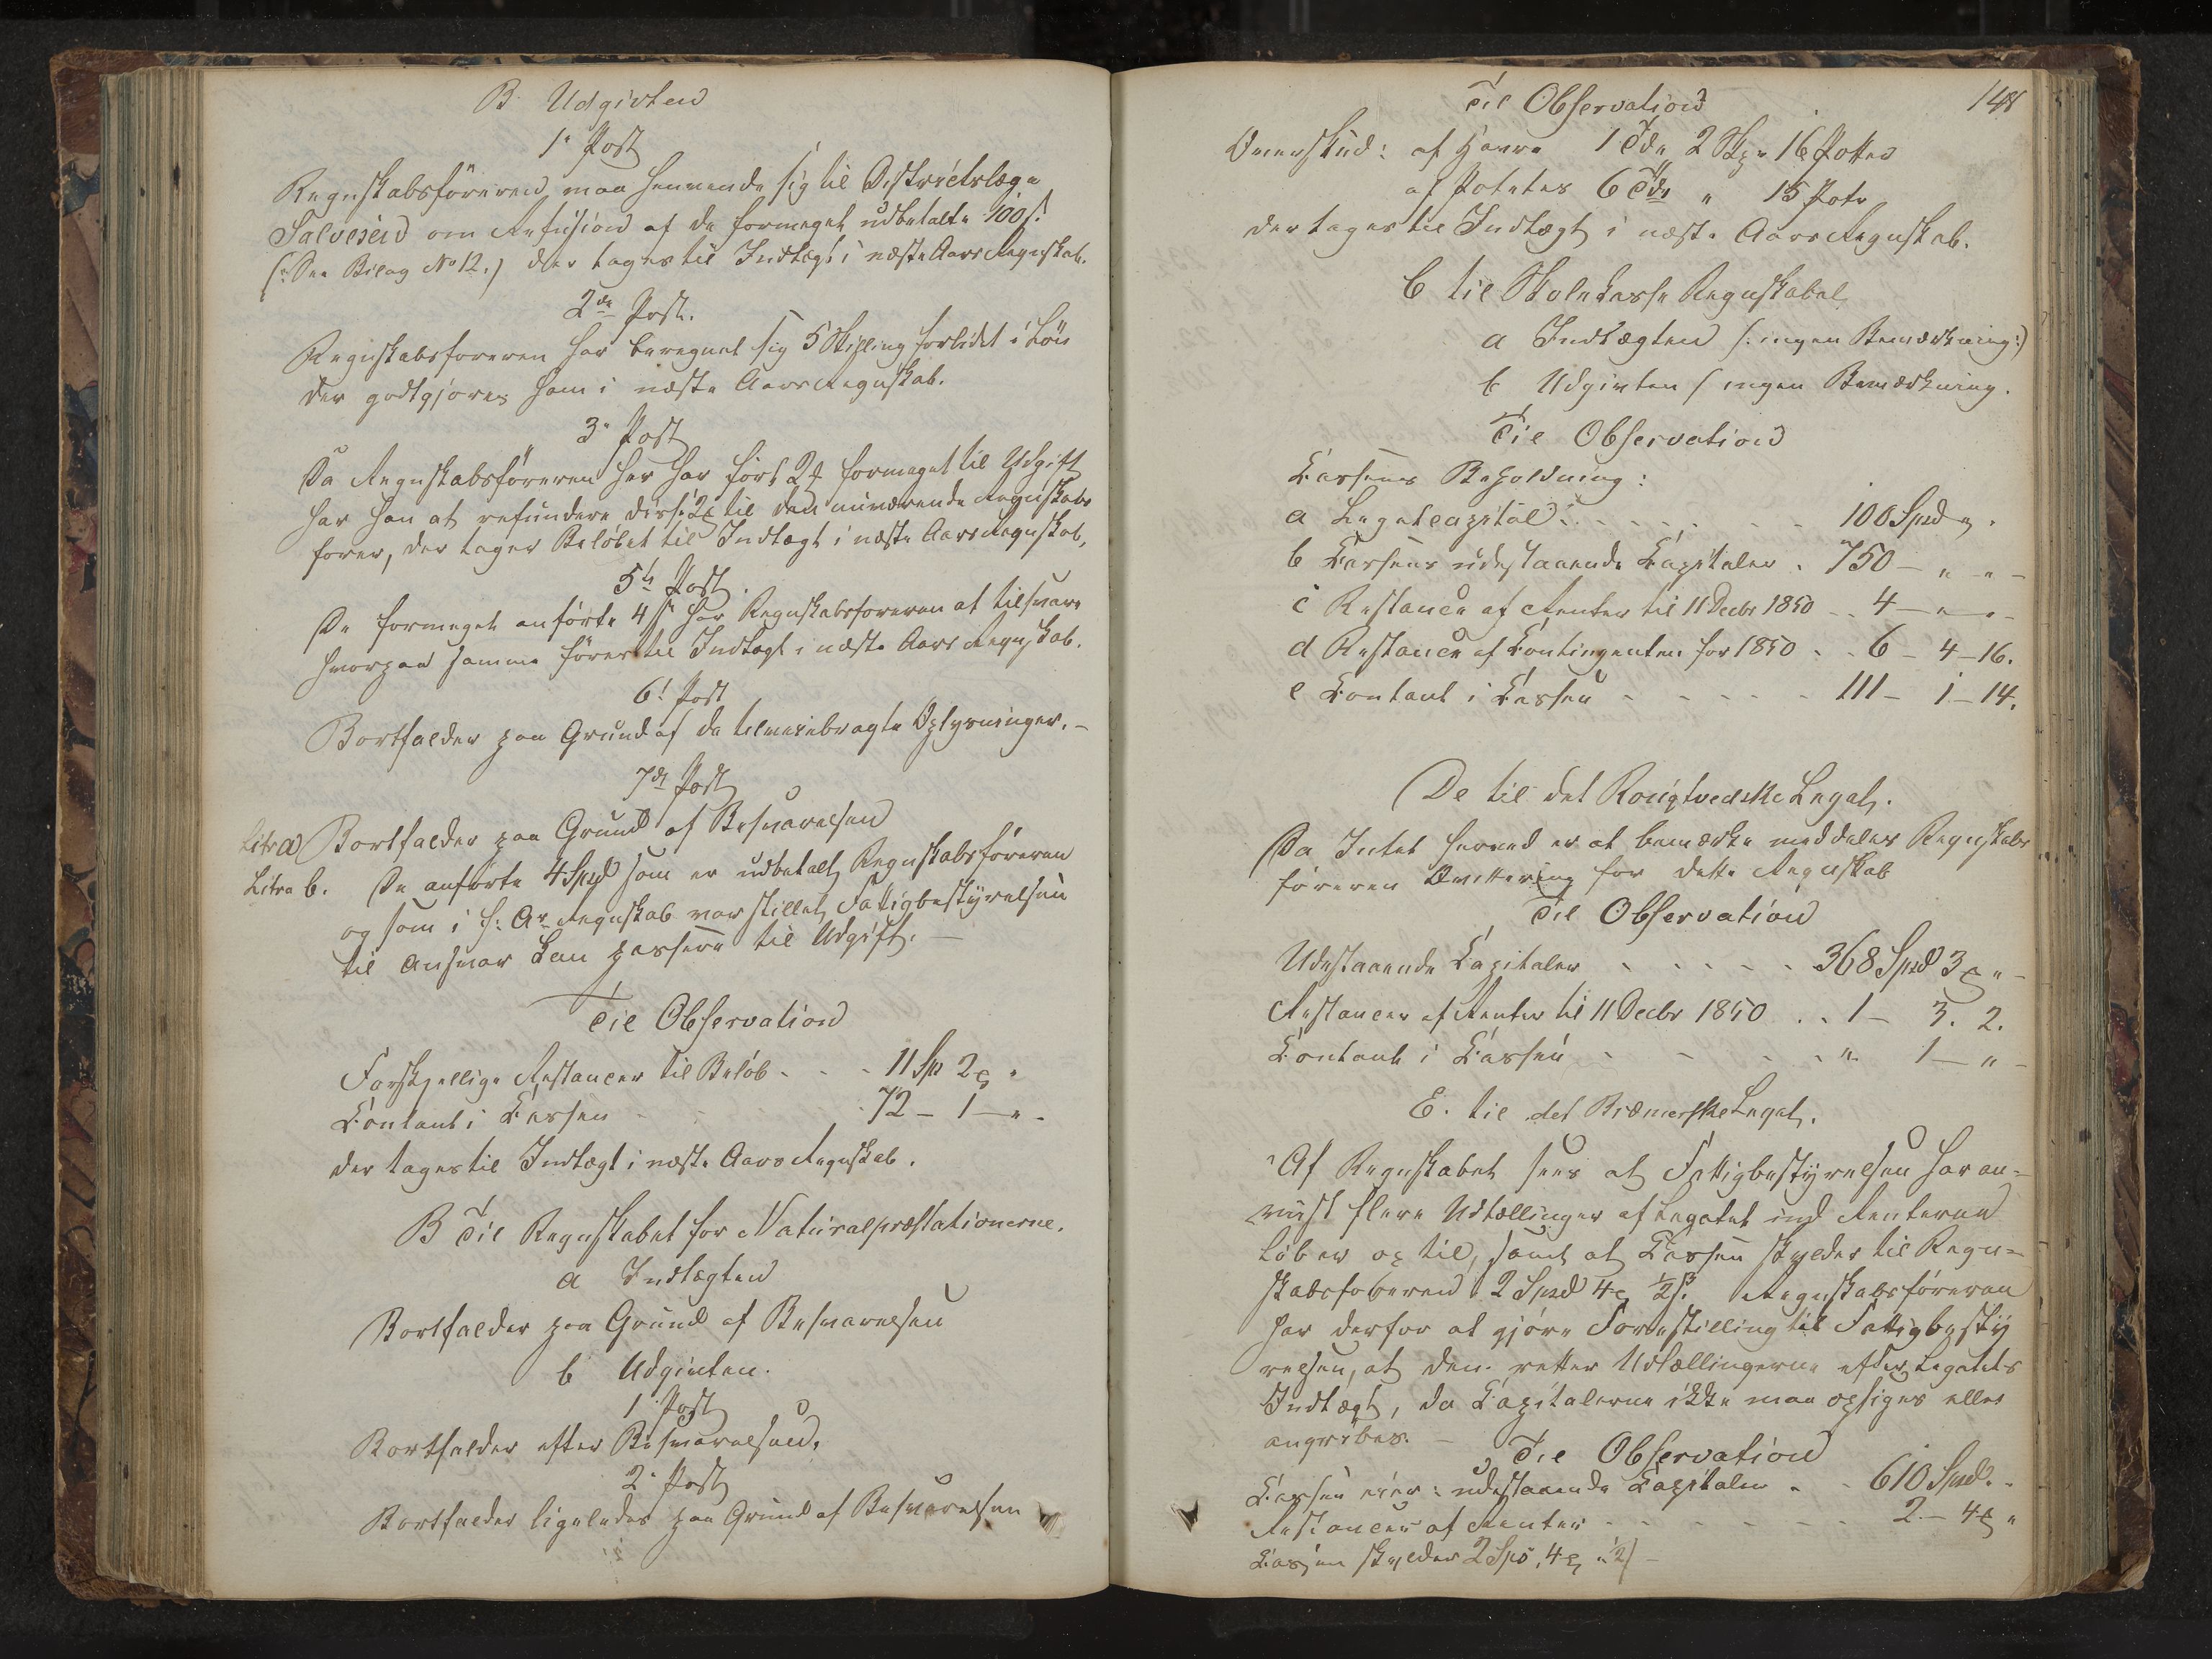 B Udgivten
1. Post
Regnskabsföreren maa henvende sig til Districtslæge
Salvesen om Refusion af de formeget udbetalte 100 s.
(: See Bilag No 12.) der tages til Indtægt i næste Aars Regnskab.
2de Post.
Regnskabsføreren har beregnet sig 5 Skilling forlidet i Løn
der godtgjøres ham i næste Aars Regnskab.
3. Post
Da Regnskabsföreren her har fört 2 formeget til Udgift
har han at refundere disse 2 til den nuværende Regnskabs
fører, der tager Beløbet til Indtægt i næste Aars Regnskab,
5te Post.
De formeget anførte 4 s har Regnskabsføreren at tilsvare
hvorpaa samme fører til Indtægt i næste Aars Regnskab.
6! Post
Bortfalder paa Grund af de tilveiebragte Oplysninger. -
7de Post
Litr a Bortfalder paa Grund af Besvarelsen
Litra b. De anførte 4 Spd som er udbetalt Regnskabsføreren
og som i f. Ar Regnskab var stillet Fattigbestyrelsen
til Ansvar kan passere til Udgift. -
Til Observation
Forskjellige Restancer til Beløb - - - 11 Sp 2 "
Contant i Kassen - - 72 - 1 - " -
der tages til Indtægt i næste Aars Regnskab.
B Til Regnskabet for Naturalpræstationerne.
a Indtægten
Bortfalder paa Grund af Besvarelsen
b Udgivten.
1. Post
Bortfalder efter Besvarelsen.
2. Post
Bortfalder ligeledes paa Grund af Besvarelsen
148
Til Observation
Overskud: af Havre 1 Tde 2 Skp 16 Potter
af Potetes 6 Tdr " 15 Potr
der tages til Indtægt i næste Aars Regnskab.
C til Skolekasse Regnskabet
a Indtægten (: ingen Bemærkning:)
b Udgivten ( ingen Bemærkning.
Til Observation
Kassens Beholdning:
a Legatcapital - - - - - - 100 Spd " .
b Kassens udestaaende Capitaler . 750 - " " -
c Restance af Renter til 11 Decbr 1850 - - 4 - " -
d Restance af Contingenten for 1850 - - 6 - 4 - 16.
e Contant i Kassen - - - - - 111 - 1 - 14.
De til det Rougtvedske Legat.
Da Intet herved er at bemærke meddeles Regnskabs
føreren Qvittering for dette Regnskab
Til Observation
Udestaaende Capitaler - - - - - 368 Spd 3 " -
Restancer af Renter til 11 Decbr 1850 . . 1 - 3. 2.
Contant i Kassen - - - - " 1 - " -
E. til det Bræmerske Legat.
Af Regnskabet sees at Fattigbestyrelsen har an=
viist flere Udtællinger af Legatet end Renterne
løber op til, samt at Kassen skylder til Regn=
skabsføreren 2 Spd 4 ½ s. Regnskabsføreren
har derfor at gjøre Forestilling til Fattigbesty
relsen, at den retter Udtællingerne efter Legatets
Indtægt, da Capitalerne ikke maa opsiges eller
angribes. -
Til Observation
Kassen eier: udestaaende Capitaler - - 610 Spd. -
Restancer af Renter - - - - - - 2 - 4 "
Kassen skylder 2 Spd, 4 " ½ s -